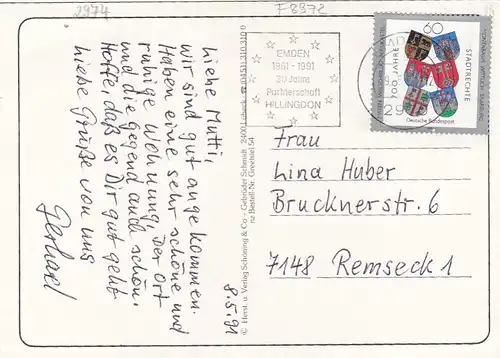 2974
F8972
Liebe Mutti,
wir sind gut angekommen.
Haben eine sehr schöne und
ruhige Wohnung. Der Ort
und die Gegend auch schön.
Hoffe, daß es Dir gut geht.
Liebe Grüße von uns
Gerhard
8.5.91
© Herst. u. Verlag Schöning & Co · Gebrüder Schmidt · 2400 Lübeck · ☎ (0451) 310 310
EMDEN
1961 - 1991
30 Jahre
Partnerschaft
HILLINGDON
60
700 JAHRE
STADTRECHTE
Deutsche Bundespost
Frau
Lina Huber
Brucknerstr. 6
7148 Remseck 1